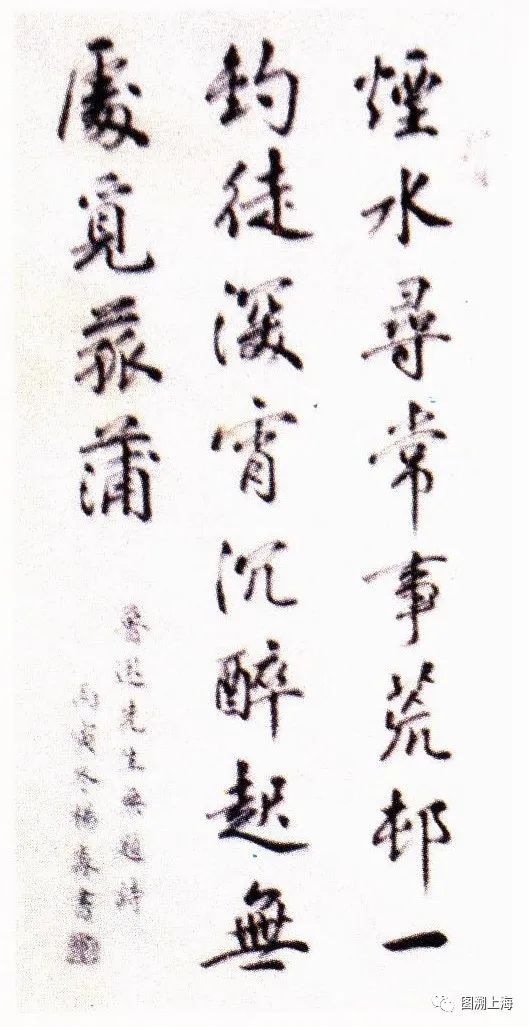 煙水尋常事荒邨一
釣徒深宵沉醉起無
處覓菰蒲
魯迅先生無題詩
丙寅冬楊書
图溯上海